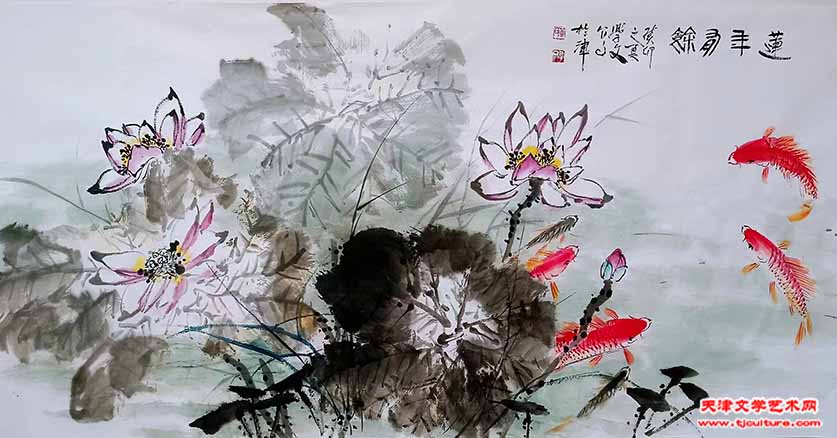 蓮年有餘
癸卯
之夏
於津
天津文学艺术网
www.tjculture.com